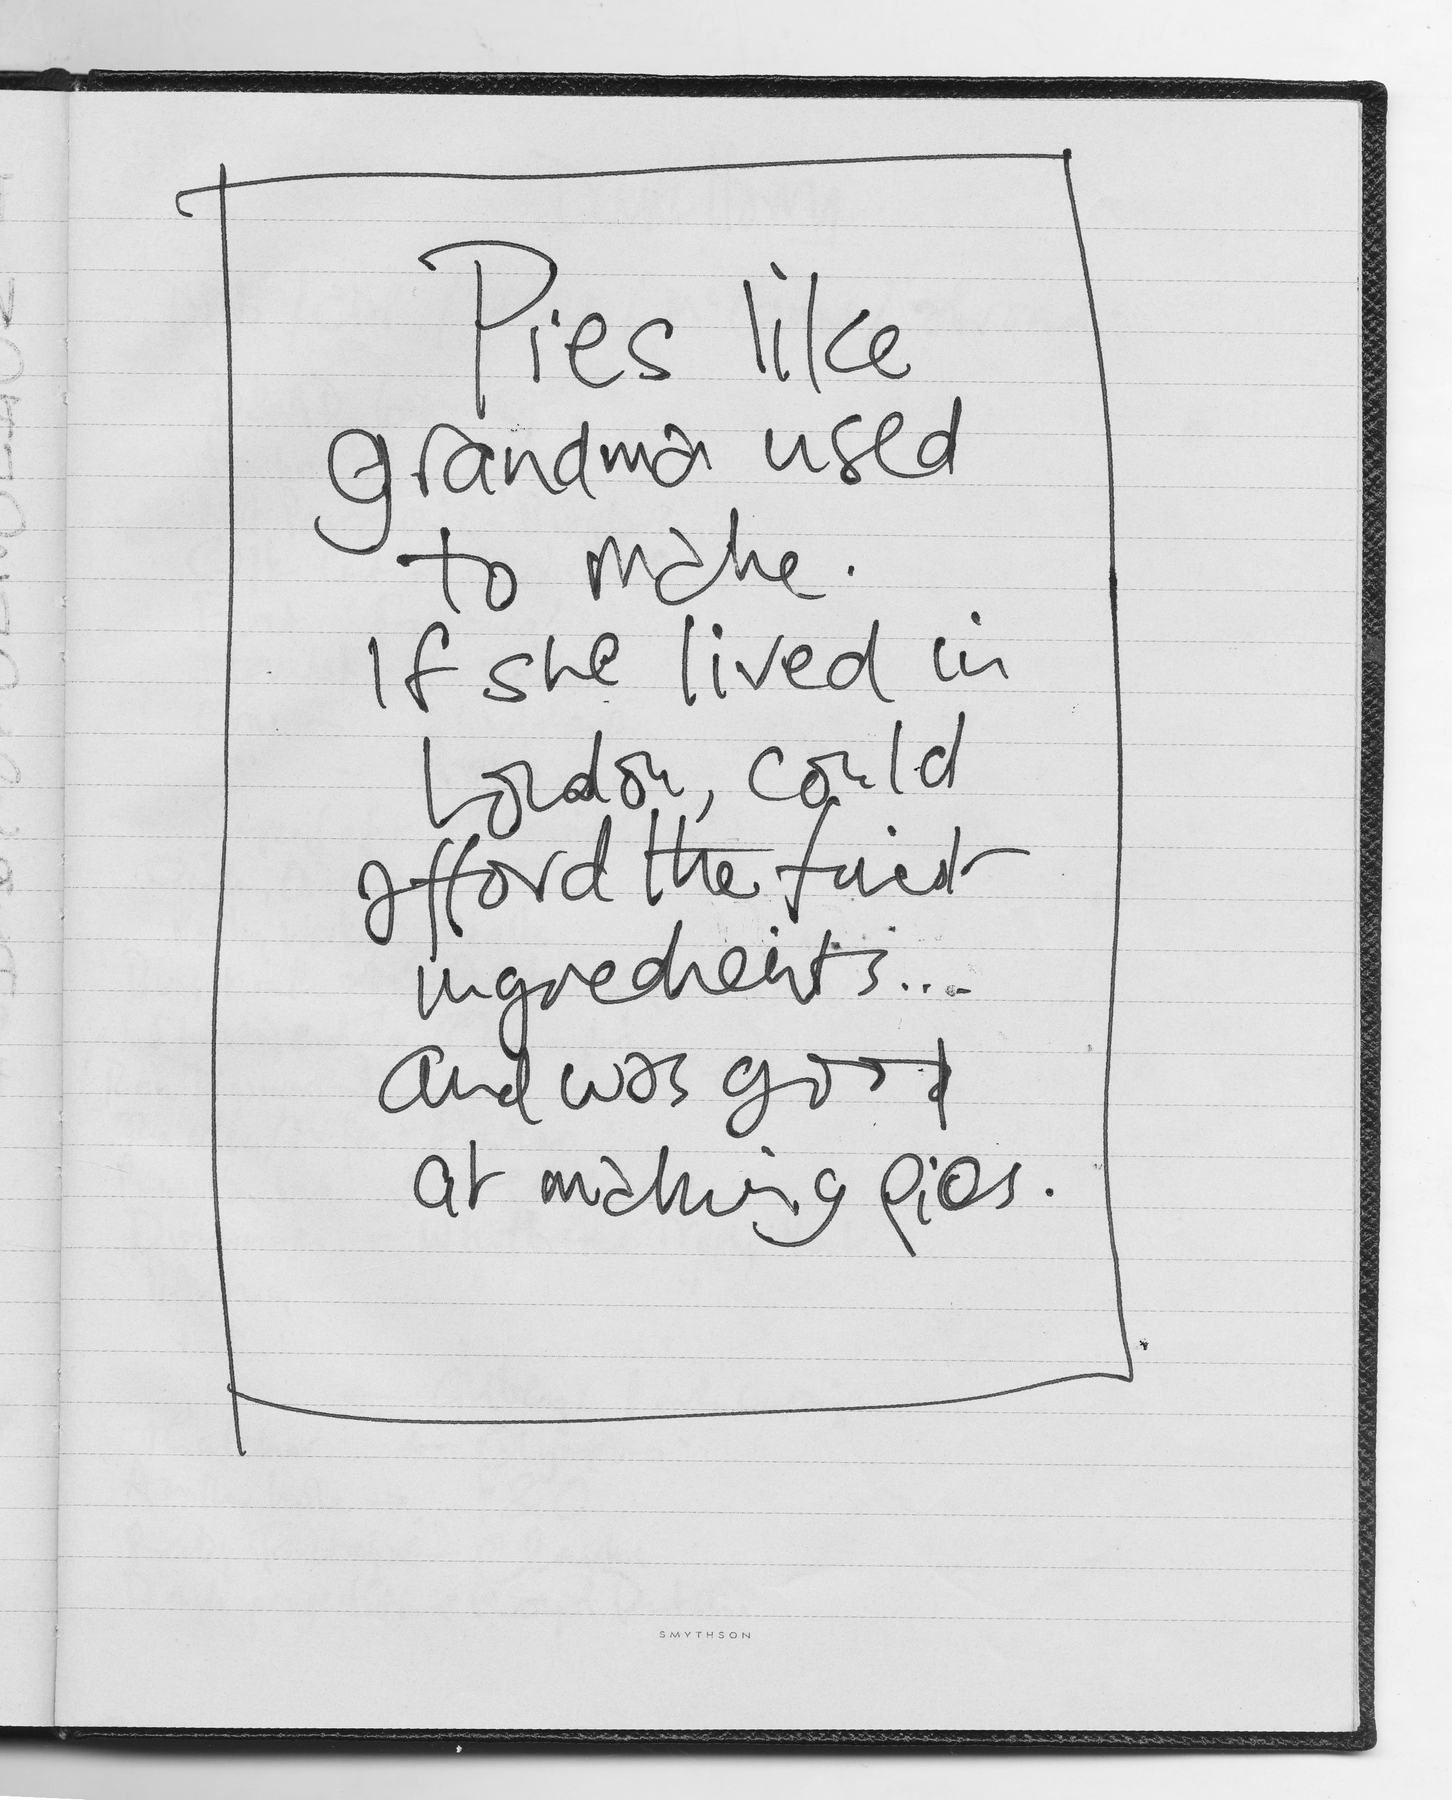 Pies like
grandma used
to make.
If she lived in
London, could
afford the finest
ingredients....
and was good
at making pies.
SMYTHSON